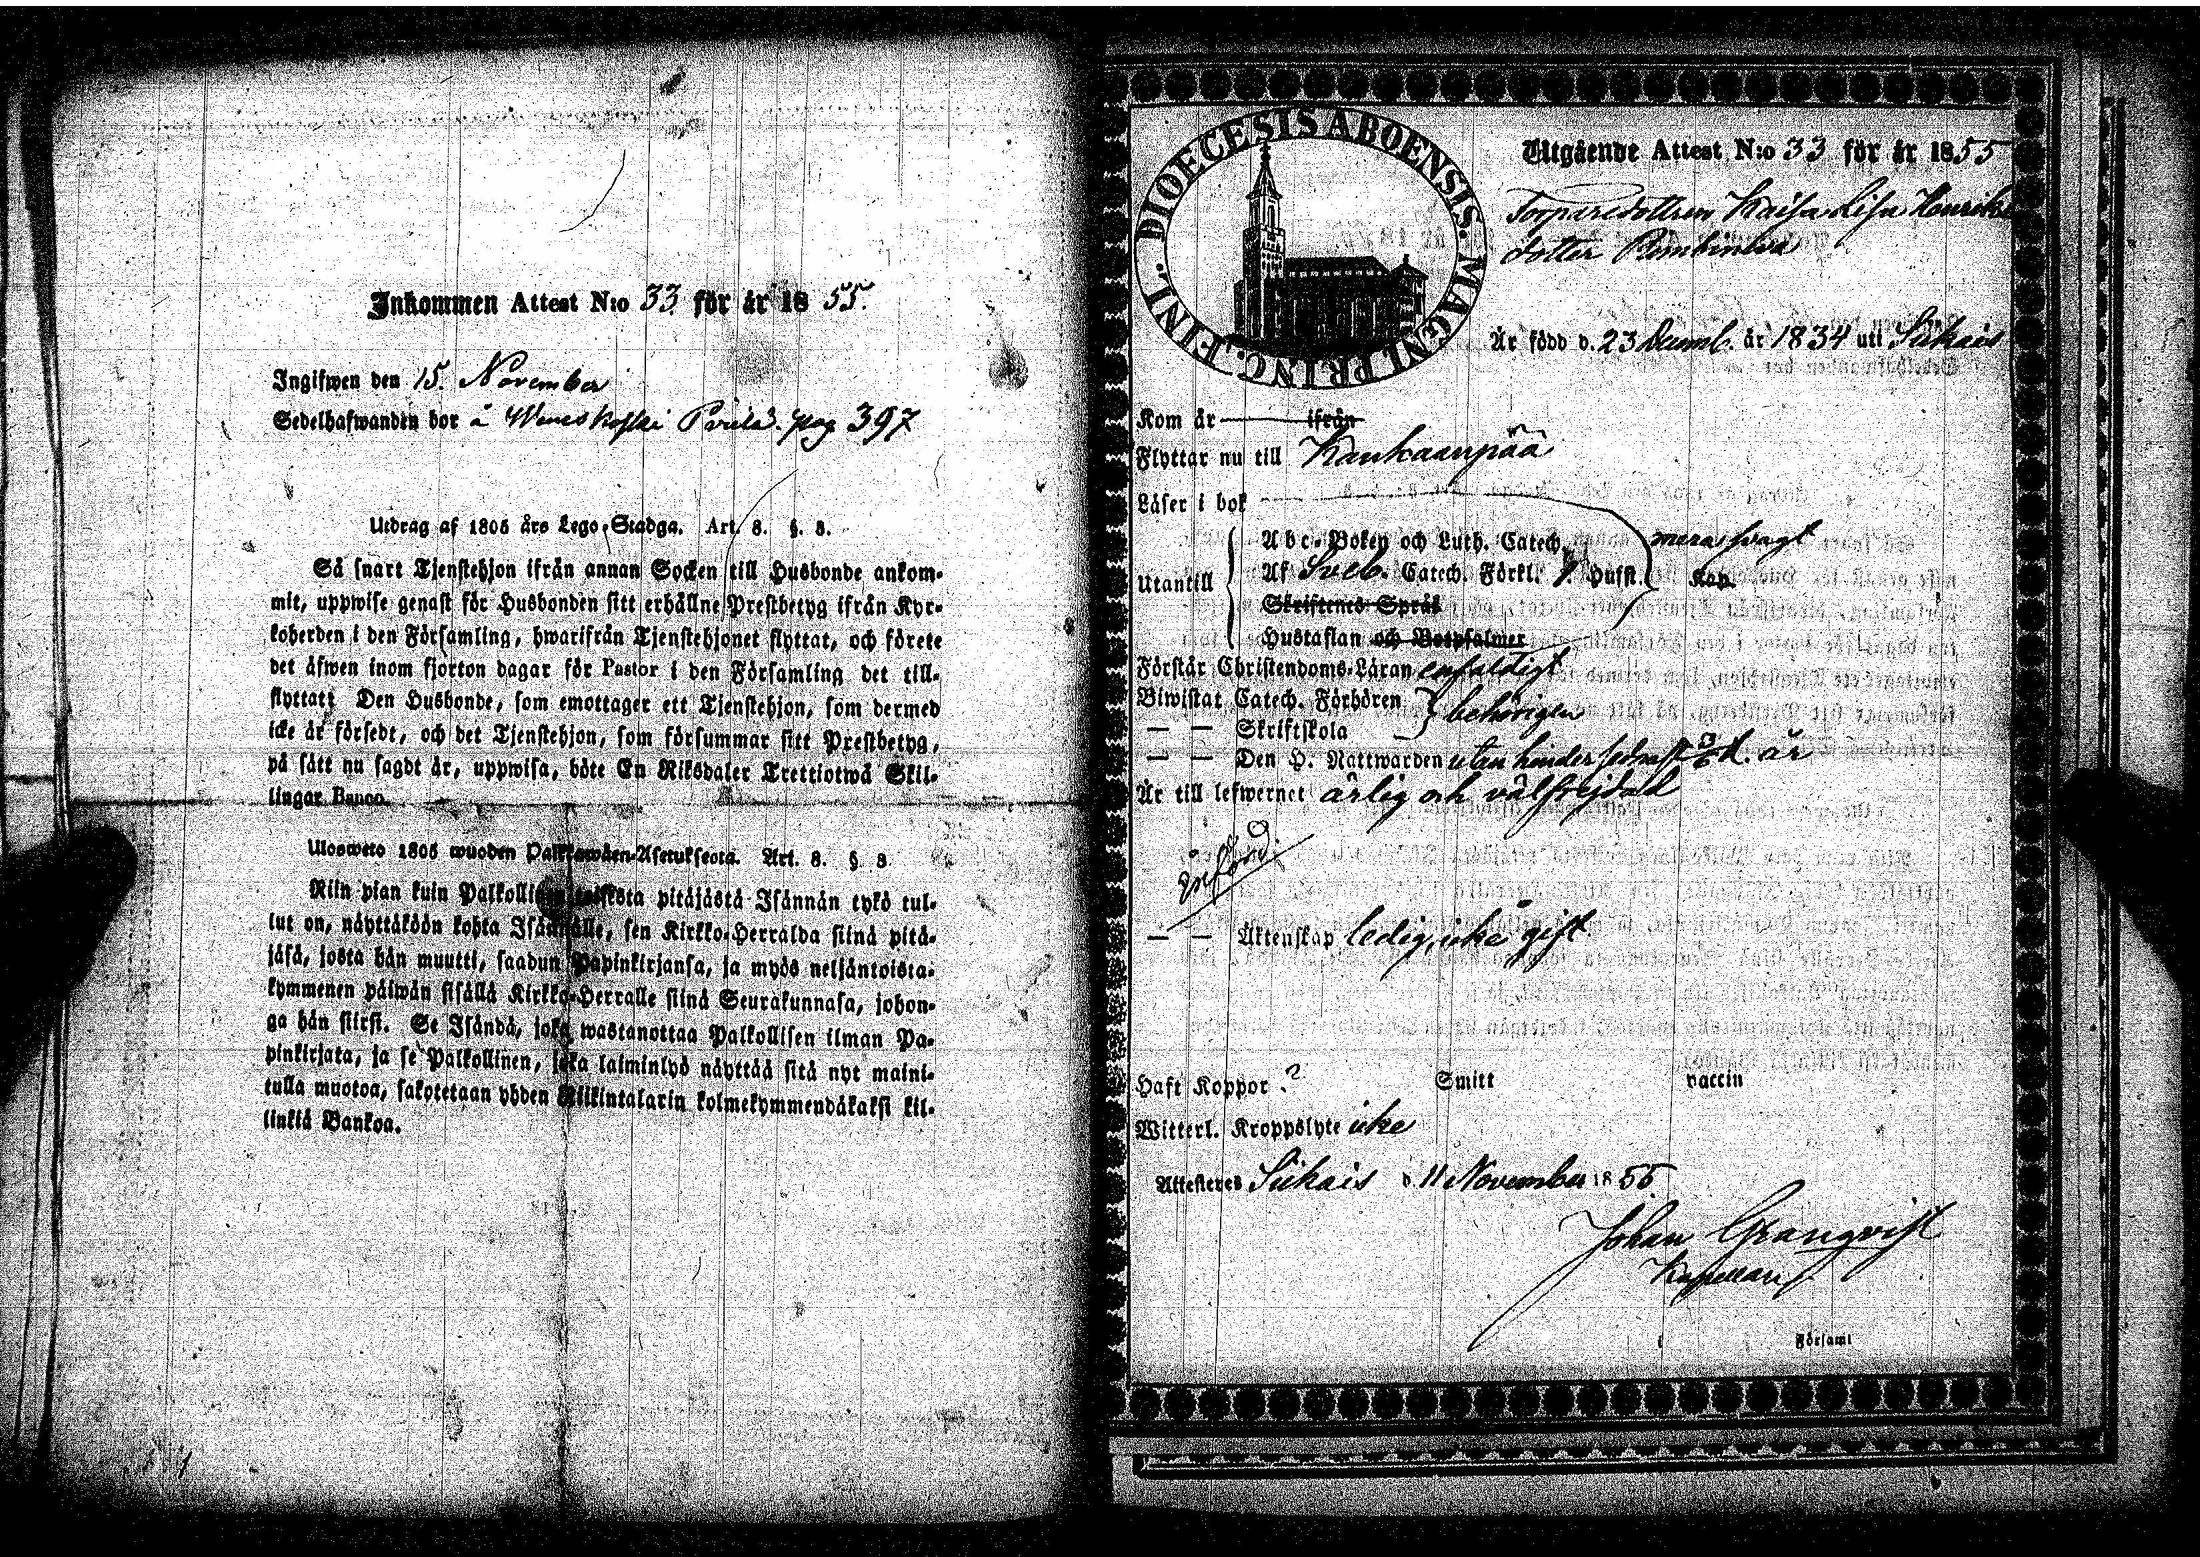 Inkommen Attest N:o 33 för år 1855.
Ingifwen den 15. November
Sedelhafwanden bor å Weneskoski pag 397
Utdrag af 1805 års Lego-Stadga. Art. 8. §. 8.
Så snart Tjenstehjon ifrån annan Socken till Husbonde ankom-
mit, uppwise genast för Husbonden sitt erhållne Prestbetyg ifrån Kyr-
koherden i den Församling, hwarifrån Tjenstehjonet flyttat, och förete
det äfwen inom fjorton dagar för Pastor i den Församling det till-
flyttat; Den Husbonde, som emottager ett Tjenstehjon, som dermed
icke är försedt, och det Tjenstehjon, som försummar sitt Prestbetyg,
på sätt nu sagdt är, uppwisa, böte En Riksdaler Trettiotwå Skil-
lingar Banco.
Ulosweto 1805 wuoden Palkkawäen-Asetuksesta. Art. 8. § 8
Niin pian kuin Palkollinen toisesta pitäjästä Isännän tykö tul-
lut on, näyttäköön kohta Isännälle, sen Kirkko-Herralda siinä pitä-
jäsä, josta hän muutti, saadun Papinkirjansa, ja myös neljäntoista-
kymmenen päiwän sisällä Kirkko-Herralle siinä Seurakunnasa, johon-
ga hän siirsi. Se Isändä, joka wastanottaa Palkollisen ilman Pa-
pinkirjata, ja se Palkollinen, joka laiminlyö näyttää sitä nyt maini-
tulla muotoa, sakotetaan yhden Riikintalarin kolmekymmendäkaksi kil-
linkiä Bankoa.
FINL. DIOECESIS ABOENSIS. MAGNI PRINC.
Utgående Attest N:o 33 för år 1855
Torparedottren Kaisa Lisa Henriks
dotter
Är född d. 23 Decemb. år 1834 uti Siikais
Kom år ifrån
Flyttar nu till Kankaanpää
Läser i bok
Utantill
Abc-Boken och Luth. Catech. svagt
Af Sveb. Catech. Förkl. Hufst. Kap.
Skriftenes Språk
Hustaflan och Botpsalmer
Förstår Christendoms-Läran enfaldigt
Biwistat Catech. Förhören
— — Skriftskola behörigen
— — Den H. Nattwarden utan hinder sednast d. år
Är till lefwernet ärlig och välfrejdad
införd.
— — Äktenskap ledig, icke gift
Haft Koppor ? Smitt vaccin
Witterl. Kroppslyte icke
Attesteres Siikais d. 11 November 1855
Johan Granqvist
Kapellan
i Församl